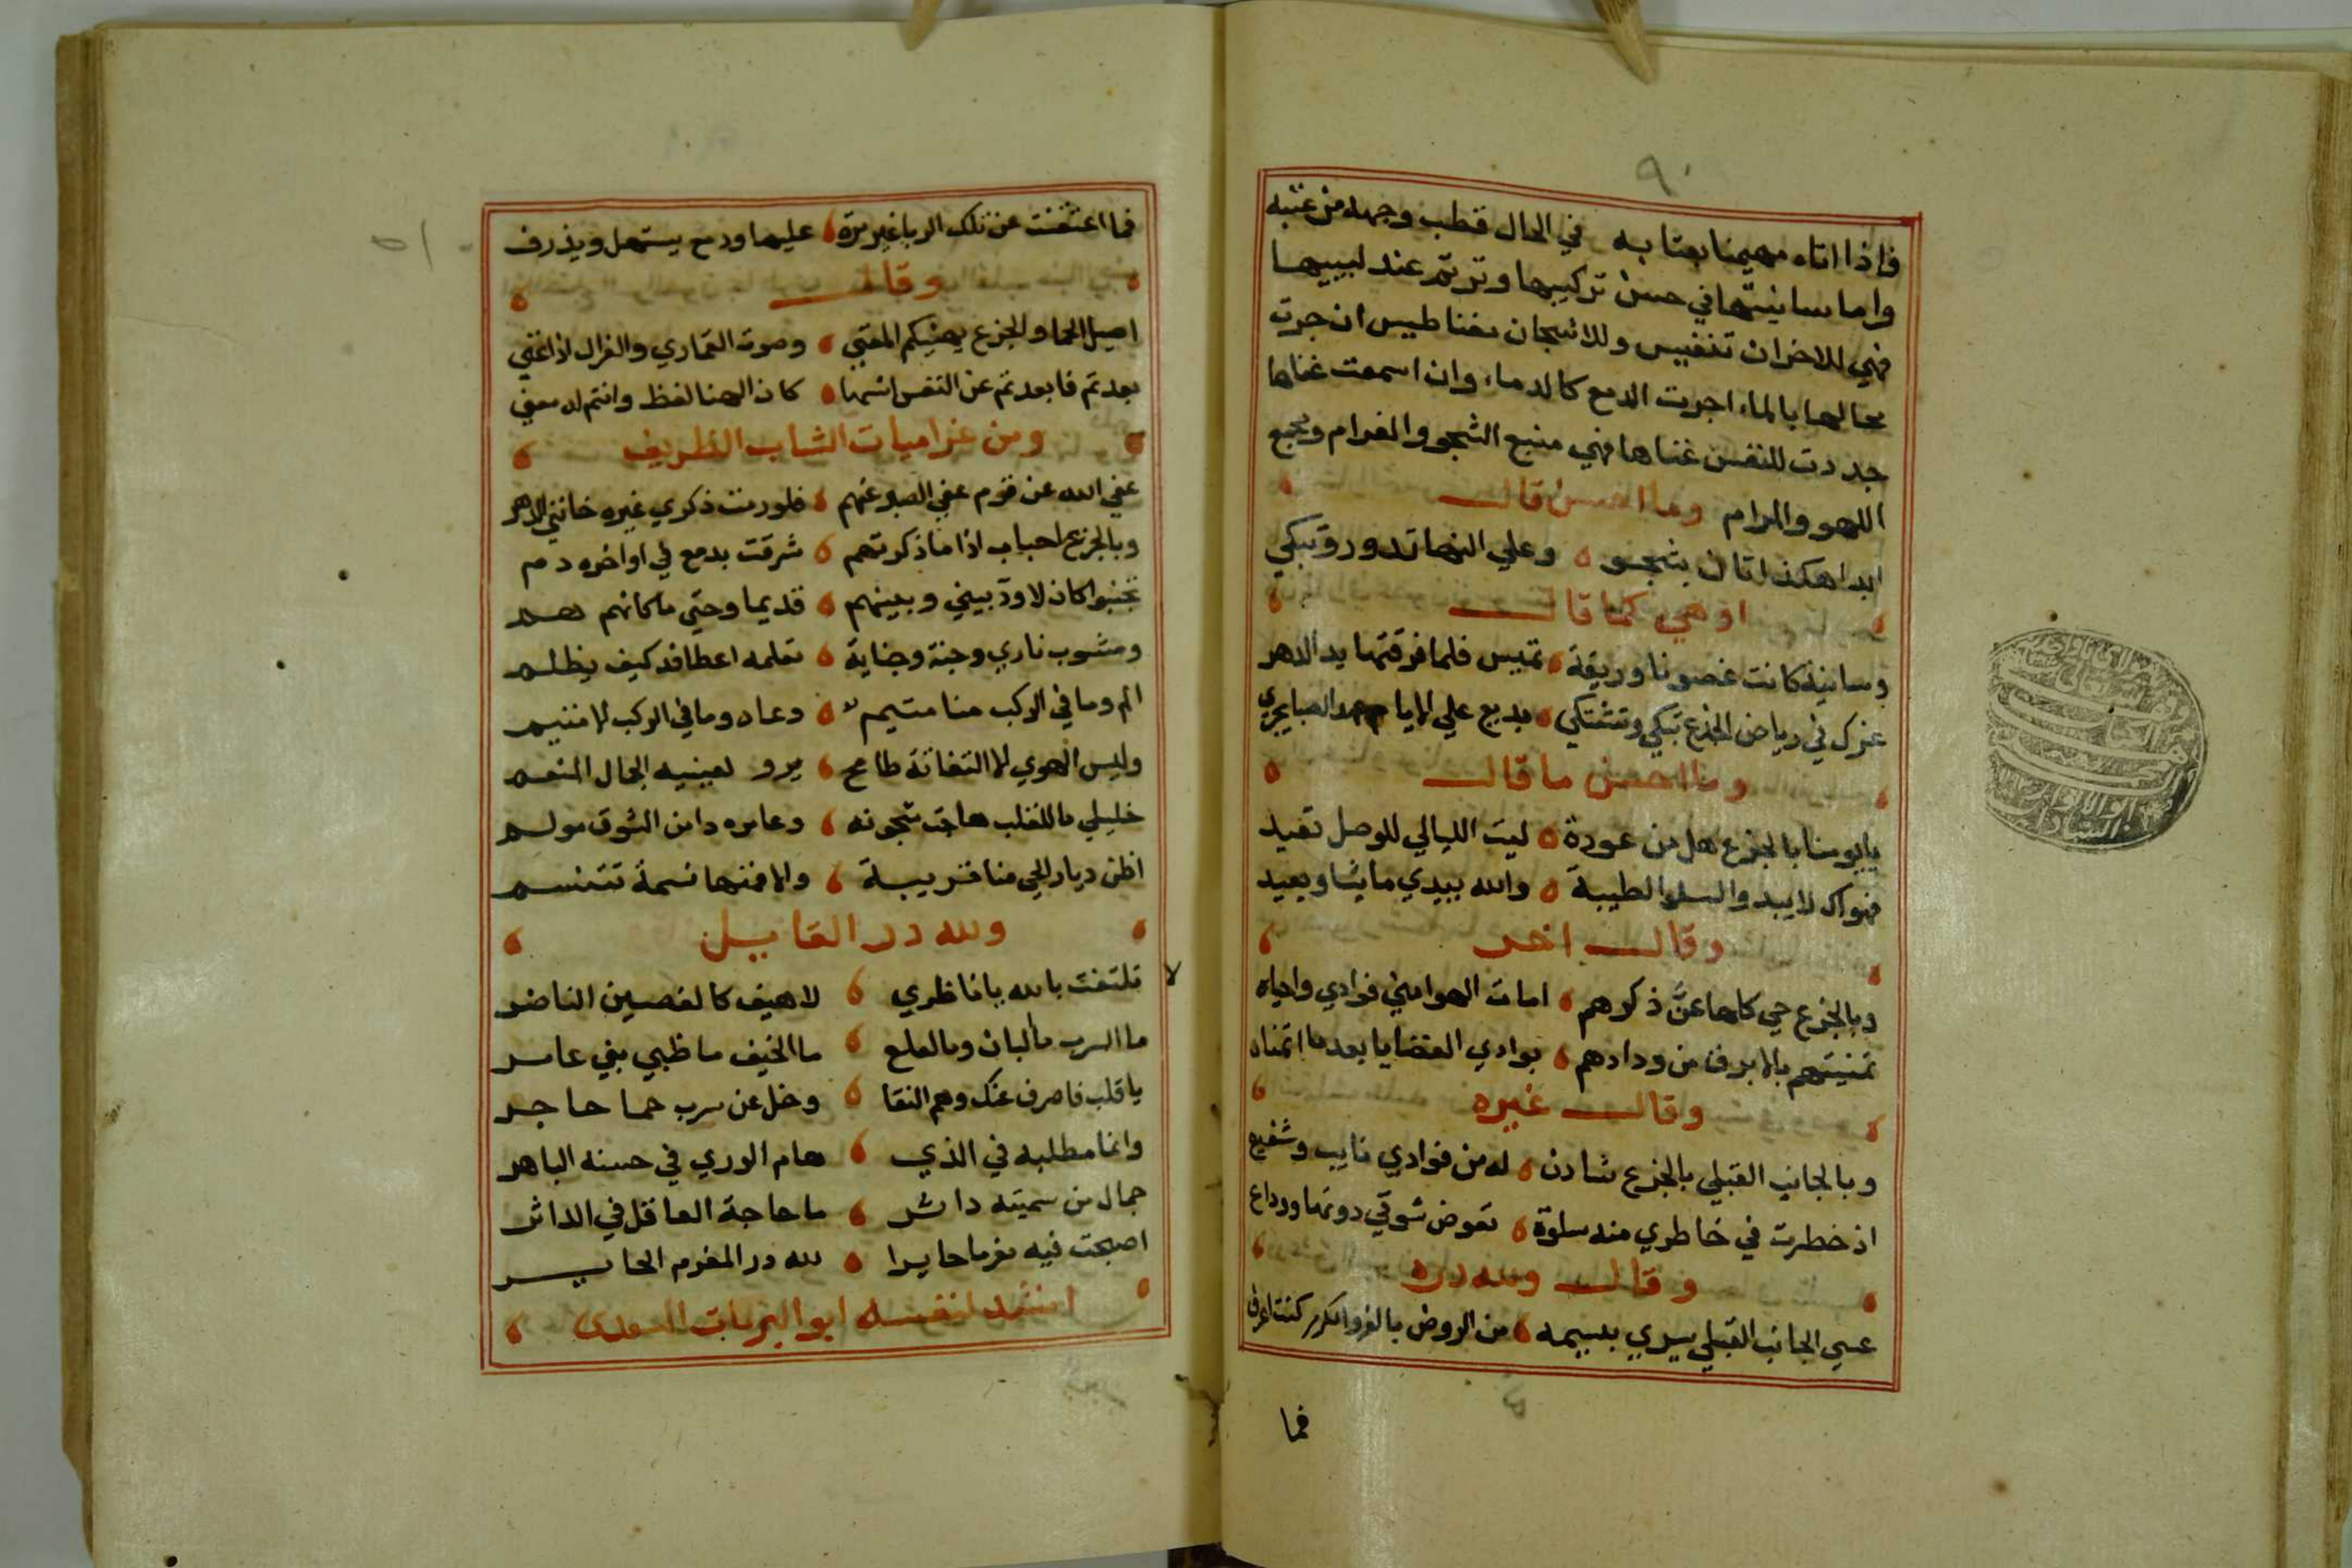 ٩٠
فاذا اتاه مهيمنا بعتابه في الحال قطب وجهه من عتبه
واما سانيتها في حسن تركيبها وترنم عند لبيبها
فهي للاحزان تنفيس وللاشجان مغناطيس ان جرت
محالها بالماء اجرت الدمع كالدماء وان اسمعت غناها
جددت للنفس غناها فهي منبع الشجو والغرام ومجمع
اللهو والمرام وما احسن قال
ابدا هكذا تان بشجو وعلي النها تدور وتبكي
او هي كما قال
وسانية كانت غصونا وريقة تميس فلما فرقتها يد الدهر
غزك في رياض الجذع تبكي وتشتكي بدمع علي الايام الصبا يجري
وما احسن ما قال
يا يومنا بالجزع هل من عودة ليت الليالي للوصل تعيد
فهواك لا يبد والسلو الطيبة والله يبدي ما يشا ويعيد
وقال اخر
وبالجزع حي كلما عنَّ ذكرهم امات الهوا مني فوادي واحياه
تمنيتهم بالابرق من ودادهم بوادي الغضايا بعد ما اتمناه
وقال غيره
وبالجانب القبلي بالجزع شادن له من فوادي نايب وشفيع
اذ خطرت في خاطري منه سلوة تعوض شوقي دونها ووداع
وقال ولله دره
عسي الجانب القبلي يسري بنسيمه من الروض بالغرو الكرم كنت اعرف
فما
فما اعتنفت عن تلك الربا غير مرة عليها ودمع يستهل ويذرف
وقال
اصيل الحما والجزع يهنيكم المقتني وصوت القماري والغزال اذا غني
بعدتم فا بعدتم عن النفس انسها كان الهنا لفظ وانتم له معني
ومن غراميات الشاب الظريف
عفي الله عن قوم عفي الصبر عنهم فلو رمت ذكري غيره خانني الدهر
وبالجزع احباب اذا ما ذكرتهم شرقت بدمع في اواخره دم
تجنبوا كان لا ود بيني وبينهم قديما وحتي ما كانهم هم
ومشوب ناري وجنة وجناية تعلمه اعطافه كيف يظلم
الم وما في الركب منا متيم وعاد وما في الركب الا متيم
وليس الهوي الا التفاتة طامح يرو لعينيه الجال المنعم
خليلي ما للقلب هاجت شجونه وعامره دا من الشوق مولم
اظن ديار الحي منا قريبة والا فمنها نسمة تتنسم
ولله در القايل
تلتفت بالله يا ناظري لا هيف كالغصين الناضر
ما السرب ما البان وما لعلع ما الخيف ما ظبي بني عامر
يا قلب فاصرف عنك وهم النقا وخل عن سرب حما حاجر
وانما مطلبه في الذي هام الوري في حسنه الباهر
جمال من سميته داثر ما حاجة العاقل في الداثر
اصبحت فيه مغرما حايرا لله در المغرم الحاير
انشد لنفسه ابو البركات السعدي